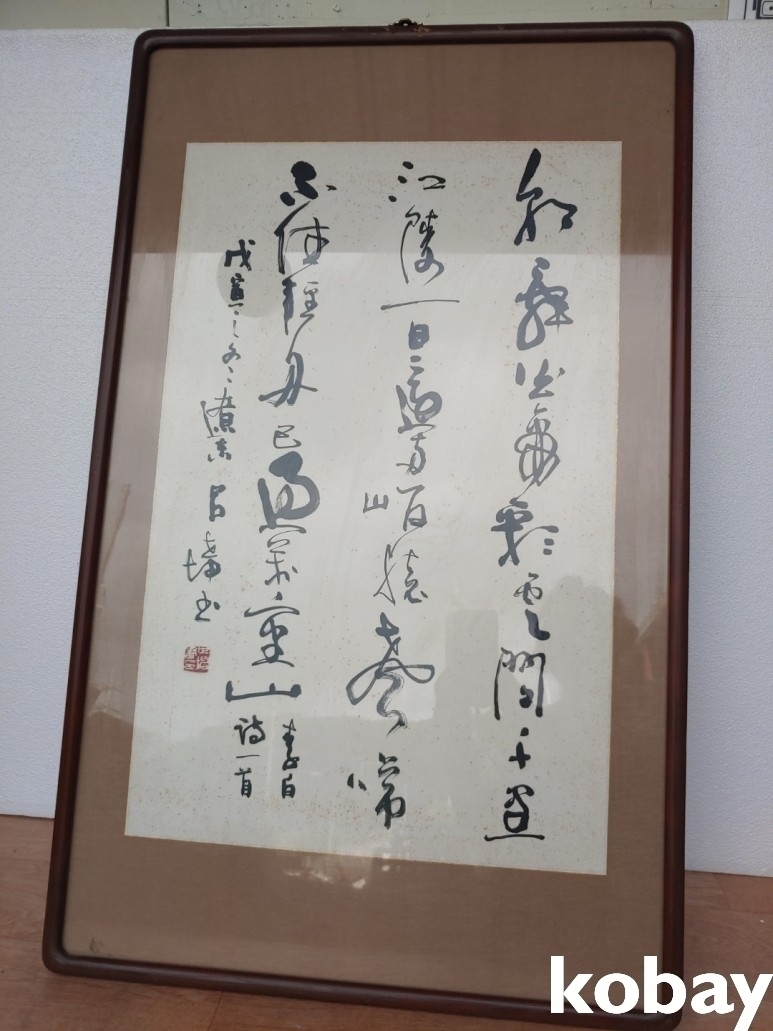 朝辭白帝彩雲間千里
江陵一日還兩岸猿聲啼
不住輕舟已過萬重山
李白
詩一首
戊寅之冬 遼東 呂 書
kobay